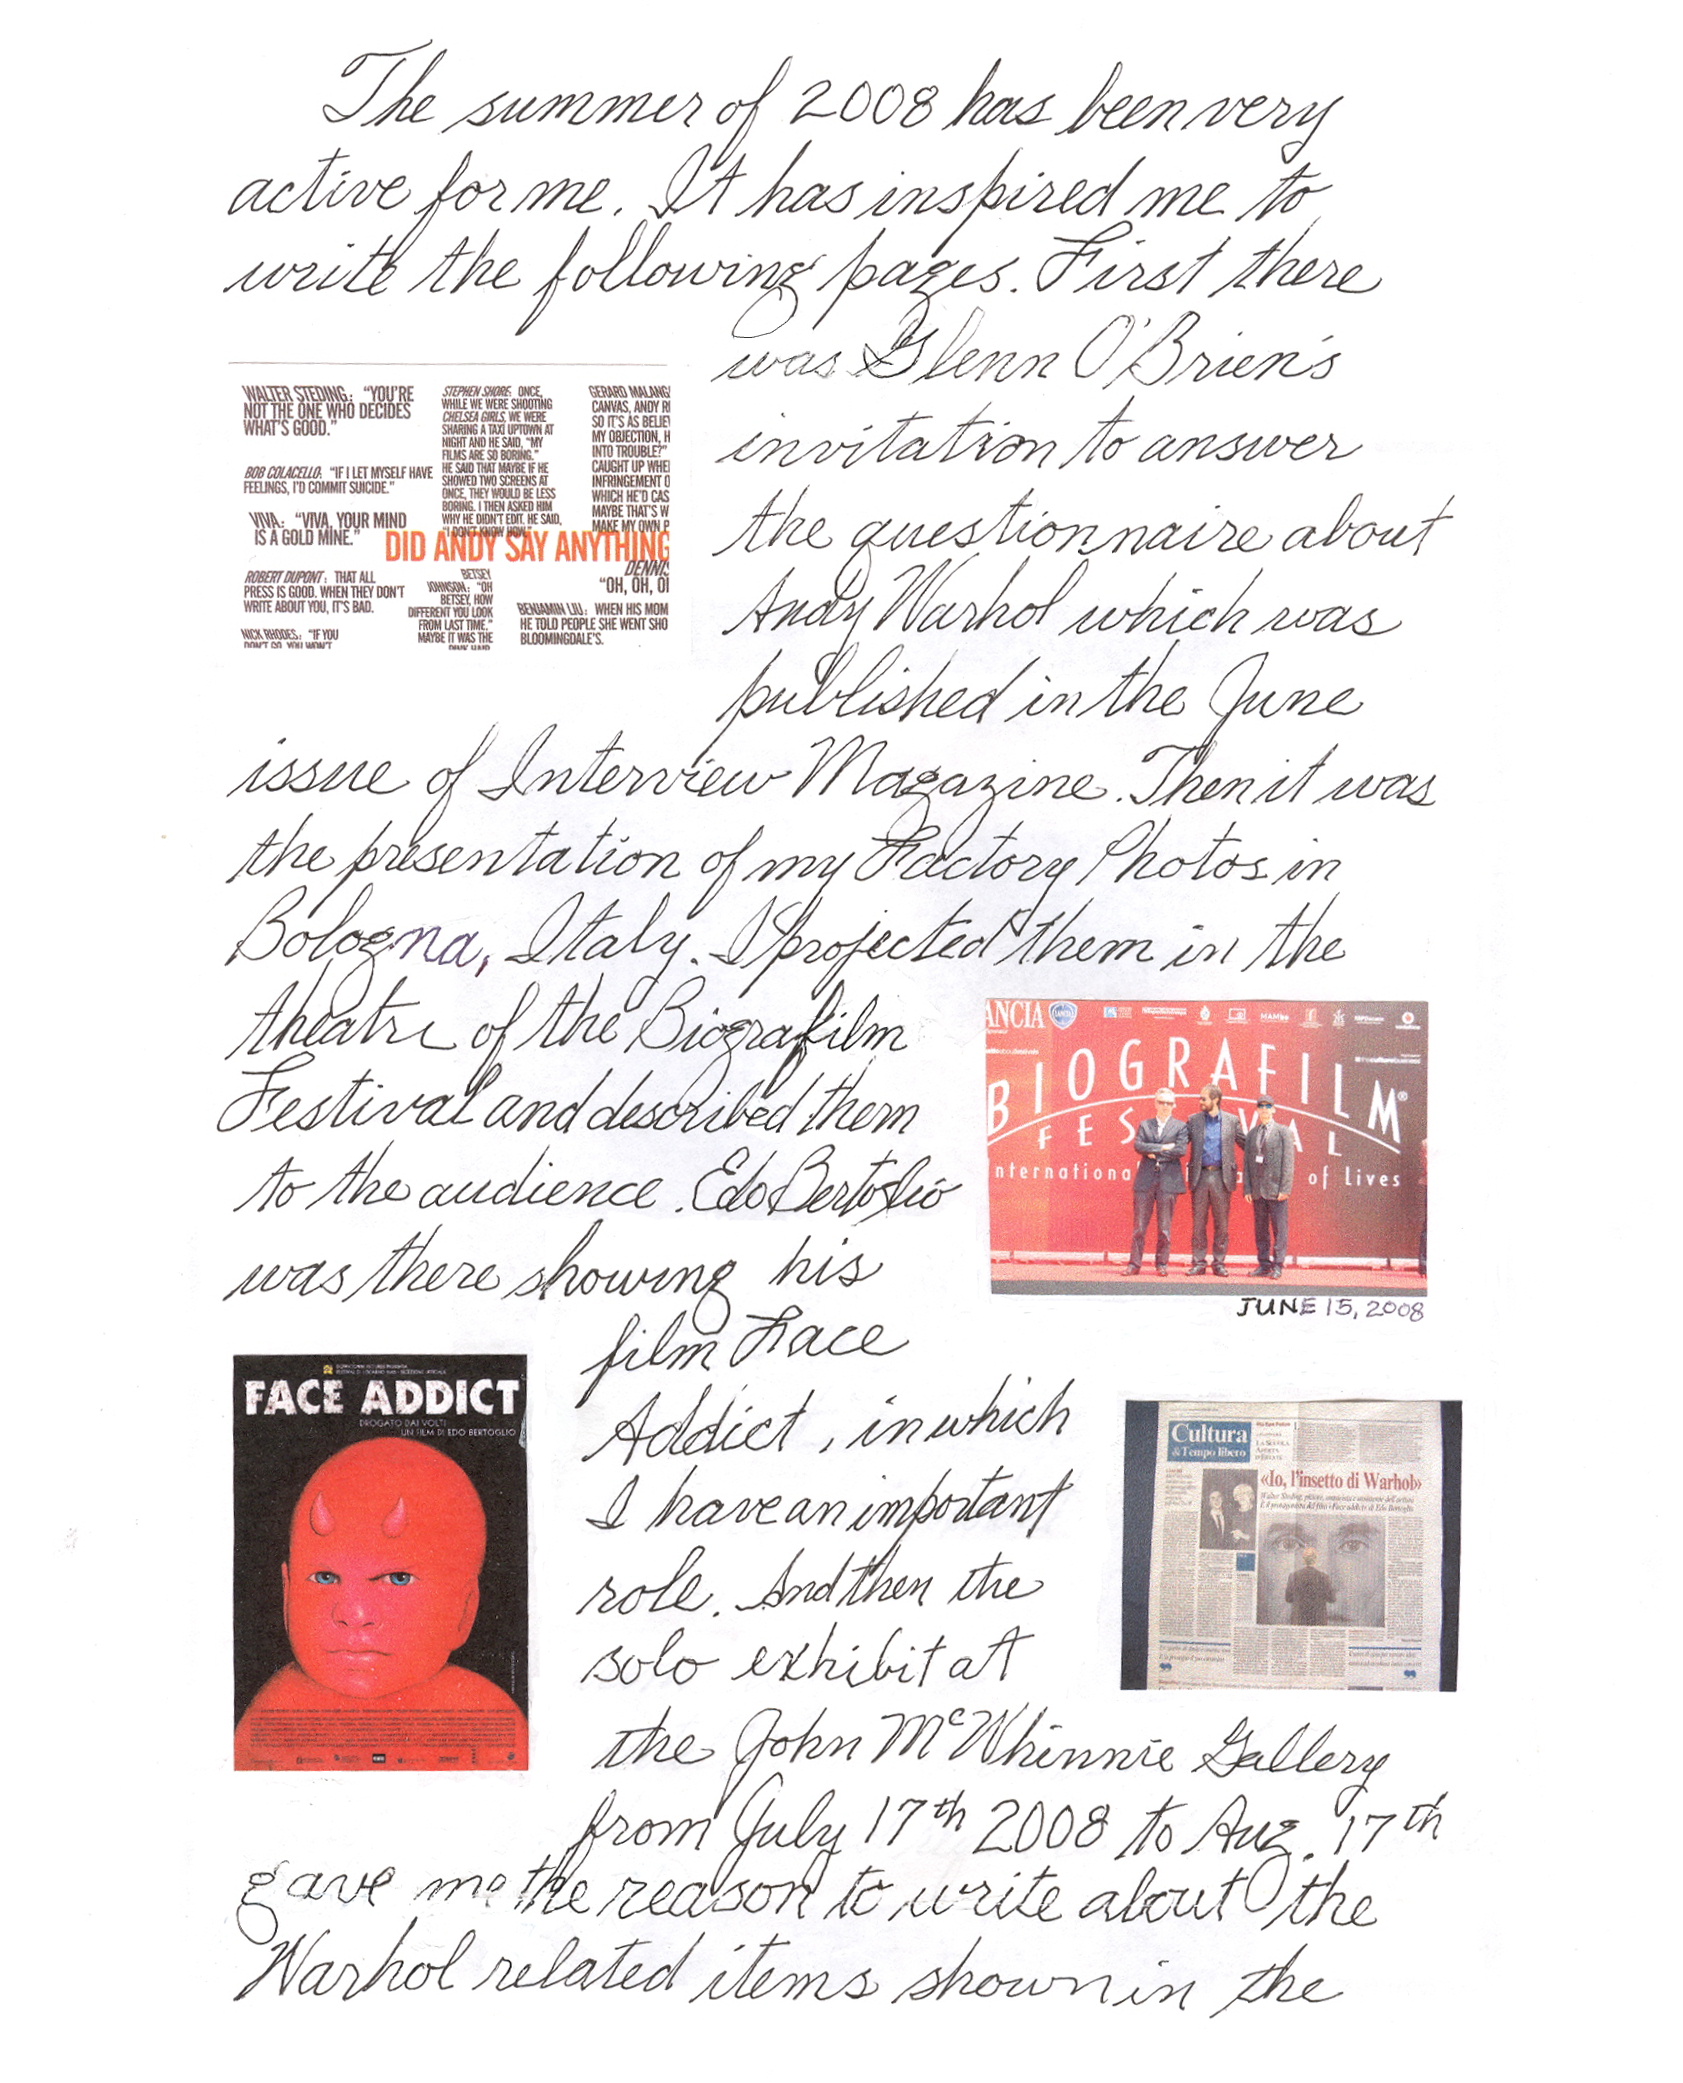 The summer of 2008 has been very
active for me. It has inspired me to
write the following pages. First there
was Glenn O'Brien's
invitation to answer
the questionnaire about
Andy Warhol which was
published in the June
WALTER STEDING: "YOU'RE
NOT THE ONE WHO DECIDES
WHAT'S GOOD."
BOB COLACELLO: "IF I LET MYSELF HAVE
FEELINGS, I'D COMMIT SUICIDE."
VIVA: "VIVA, YOUR MIND
IS A GOLD MINE."
ROBERT DUPONT: THAT ALL
PRESS IS GOOD. WHEN THEY DON'T
WRITE ABOUT YOU, IT'S BAD.
NICK RHODES: "IF YOU
DON'T GO, YOU WON'T
STEPHEN SHORE: ONCE,
WHILE WE WERE SHOOTING
CHELSEA GIRLS, WE WERE
SHARING A TAXI UPTOWN AT
NIGHT AND HE SAID, "MY
FILMS ARE SO BORING."
HE SAID THAT MAYBE IF HE
SHOWED TWO SCREENS AT
ONCE, THEY WOULD BE LESS
BORING. I THEN ASKED HIM
WHY HE DIDN'T EDIT. HE SAID,
"I DON'T KNOW HOW."
GERARD MALANG
CANVAS, ANDY RI
SO IT'S AS BELIEV
MY OBJECTION, H
INTO TROUBLE?"
CAUGHT UP WHEN
INFRINGEMENT O
WHICH HE'D CAS
MAYBE THAT'S W
MAKE MY OWN P
DID ANDY SAY ANYTHING
DENNIS
"OH, OH, OI
BETSEY
JOHNSON: "OH
BETSEY, HOW
DIFFERENT YOU LOOK
FROM LAST TIME."
MAYBE IT WAS THE
PINK HAIR
BENJAMIN LIU: WHEN HIS MOM
HE TOLD PEOPLE SHE WENT SHO
BLOOMINGDALE'S.
issue of Interview Magazine. Then it was
the presentation of my Factory Photos in
Bologna, Italy. I projected them in the
theatre of the Biografilm
Festival and described them
to the audience. Edo Bertoglio
was there showing his
ANCIA
LANCIA
MAMbo
vodafone
BIOGRAFILM®
FES VAL
nternationa of Lives
JUNE 15, 2008
film Face
Addict, in which
I have an important
role. And then the
solo exhibit at
the John McWhinnie Gallery
from July 17th 2008 to Aug. 17th
FACE ADDICT
DROGATO DAI VOLTI
UN FILM DI EDO BERTOGLIO
Cultura
&Tempo libero
«Io, l'insetto di Warhol»
Walter Steding, pittore, violinista e assistente dell'artista
È il protagonista del film «Face addict» di Edo Bertoglio
gave me the reason to write about the
Warhol related items shown in the